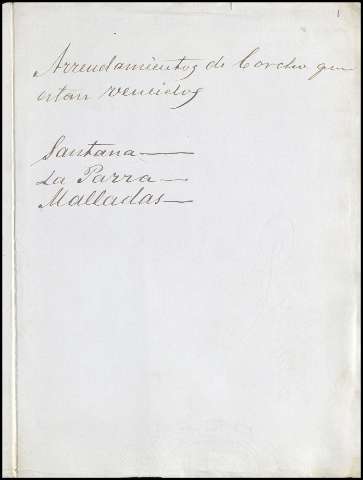 Arrendamientos de Corcho que
estan vencidos
Santana
La Parra
Malladas